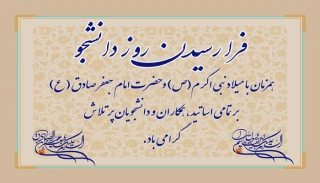 فرا رسیدن روز دانشجو
همزمان با میلاد نبی اکرم (ص) و حضرت امام جعفر صادق (ع)
بر تمامی اساتید، همکاران و دانشجویان پر تلاش
گرامی باد.